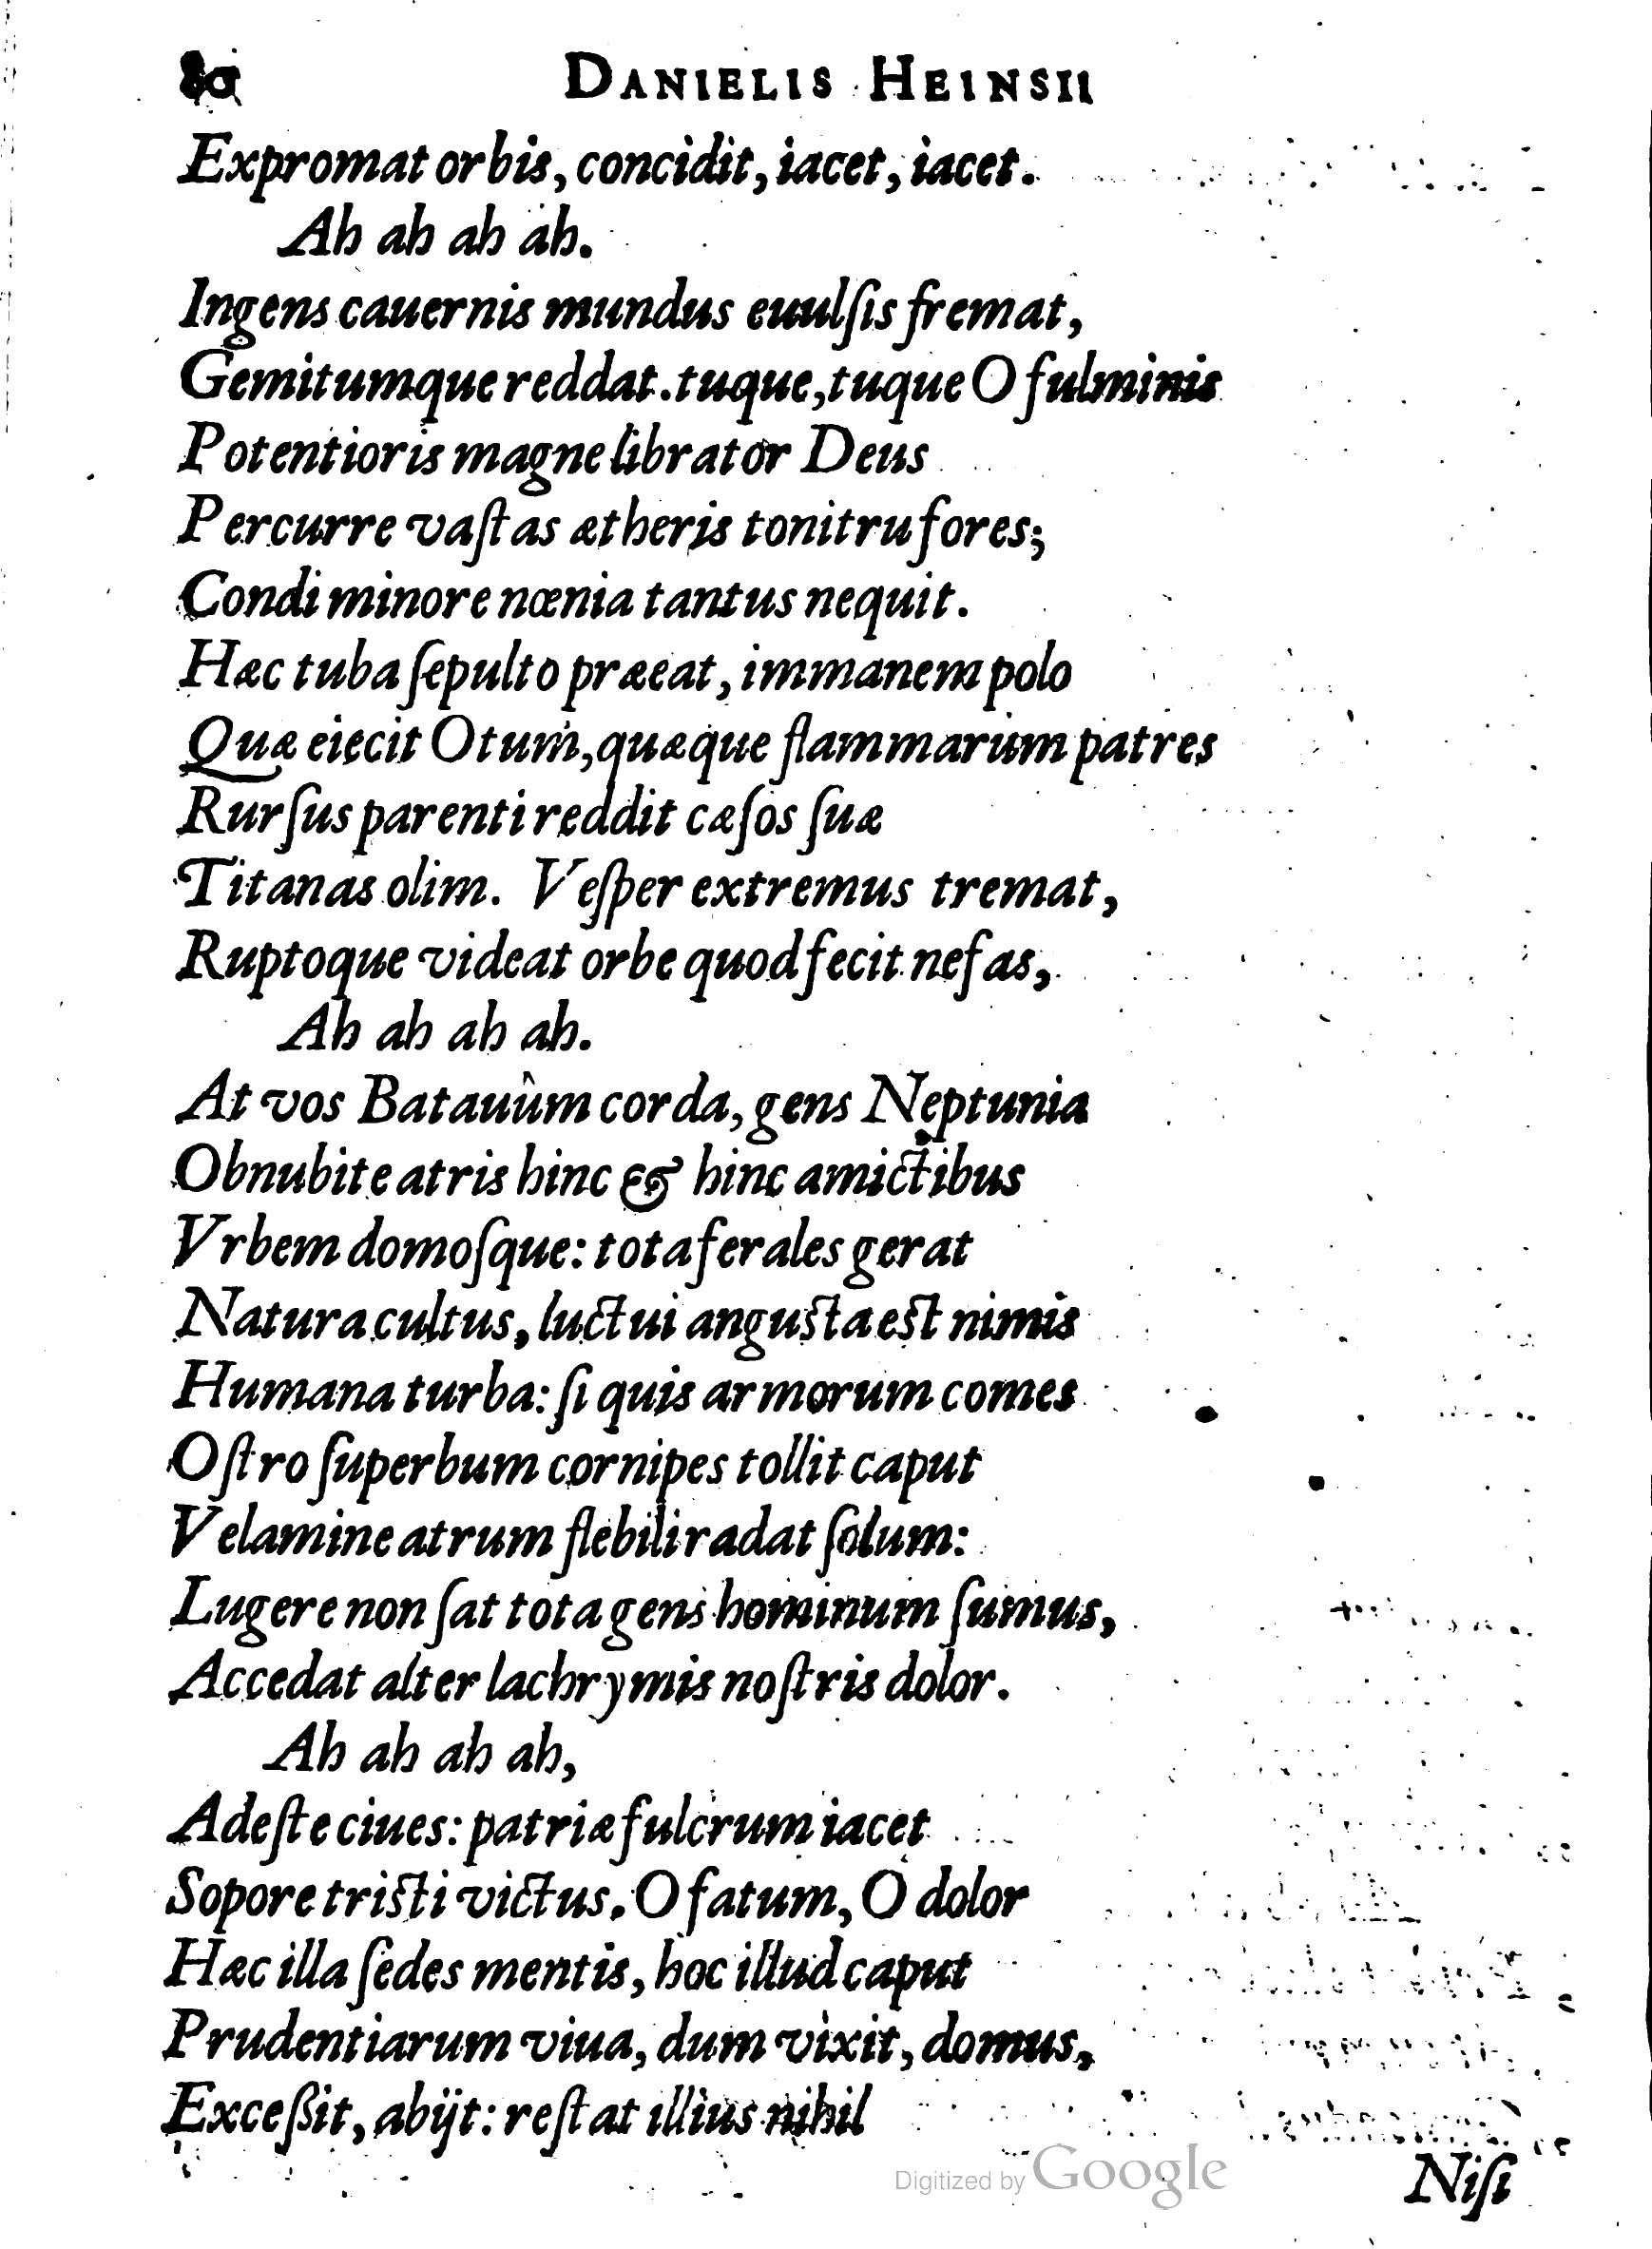 80 DANIELIS HEINSII
Expromat orbis, concidit, iacet, iacet.
Ah ah ah ah.
Ingens cauernis mundus euulſis fremat,
Gemitumque reddat. tuque, tuque O fulminis
Potentioris magne librator Deus
Percurre vaſtas ætheris tonitru fores;
Condi minore nœnia tantus nequit.
Hæc tuba ſepulto præeat, immanem polo
Quæ eiecit Otum, quæque flammarum patres
Rurſus parenti reddit cæſos ſuæ
Titanas olim. Veſper extremus tremat,
Ruptoque videat orbe quod fecit nefas,
Ah ah ah ah.
At vos Batauûm corda, gens Neptunia
Obnubite atris hinc & hinc amictibus
Vrbem domoſque: tota ferales gerat
Natura cultus, luctui anguſta eſt nimis
Humana turba: ſi quis armorum comes
Oſtro ſuperbum cornipes tollit caput
Velamine atrum flebili radat ſolum:
Lugere non ſat tota gens hominum ſumus,
Accedat alter lachrymis noſtris dolor.
Ah ah ah ah,
Adeſte ciues: patriæ fulcrum iacet
Sopore triſti victus. O fatum, O dolor
Hæc illa ſedes mentis, hoc illud caput
Prudentiarum viua, dum vixit, domus,
Exceßit, abijt: reſtat illius nihil
Digitized by Google
Niſi